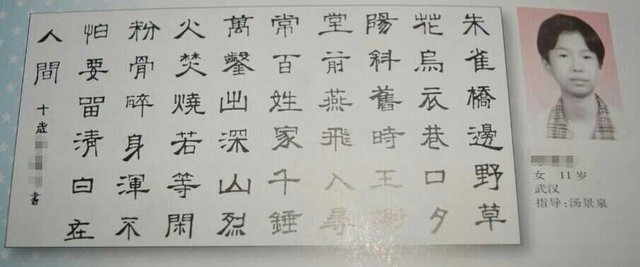 朱雀橋邊野草
花烏衣巷口夕
陽斜舊時王謝
堂前燕飛入尋
常百姓家千錘
萬鑿出深山烈
火焚燒若等閑
粉骨碎身渾不
怕要留清白在
人間 十歲 書
女 11岁
武汉
指导:汤景泉